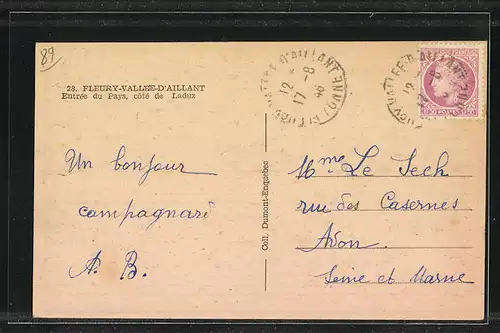 89
28. FLEURY-VALLEE-D'AILLANT
Entrée du Pays, côté de Laduz
Un bonjour
campagnard
A. B.
Coll. Dumont-Enquebec
VALLEE D'AILLANT
12 -
17 -8
46
YONNE
Mme Le Sech
rue des Casernes
Avon
Seine et Marne